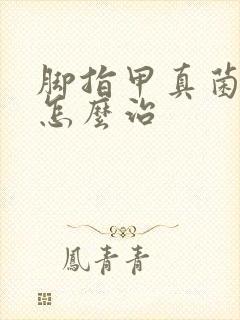 脚指甲真菌
怎麼治
鳳青青